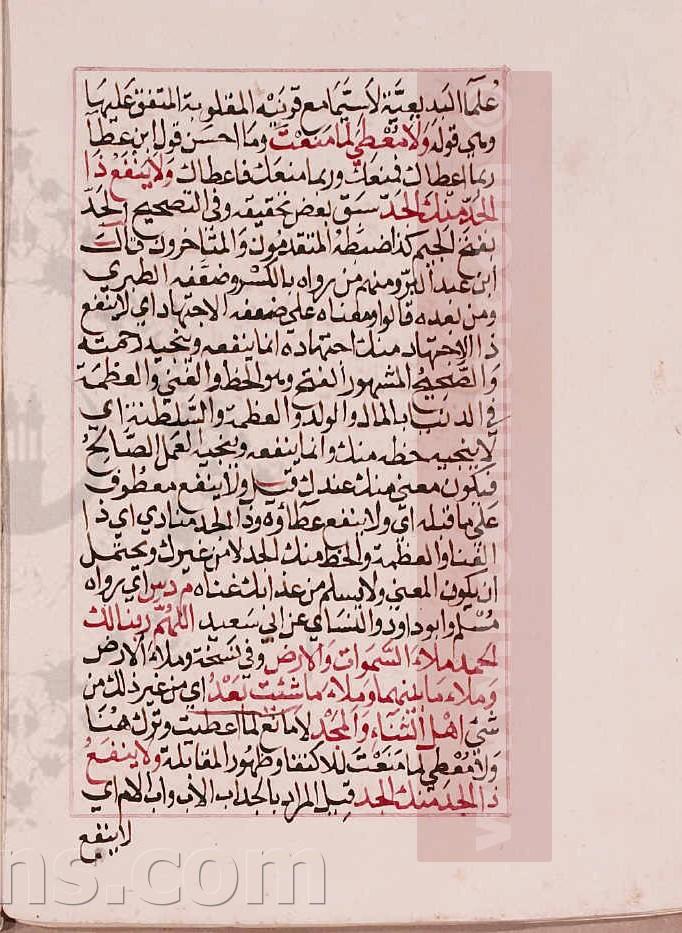 علماء البديعية لاسيما مع قرينه المقلوبة المتفق عليها
وهي قوله ولا معطي لما منعت وما احسن قول ابن عطا
ربما اعطاك فمنعك وربما منعك فاعطاك ولا ينفع ذا
الجد منك الجد سبق بعض تحقيقه وفي التصحيح الجد
بفتح الجيم كذا ضبطه المتقدمون والمتاخرون قال
ابن عبد البر ومنهم من رواه بالكسر وضعفه الطبري
ومن بعده قالوا ومعناه على ضعفه الاجتهاد اي لا ينفع
ذا الاجتهاد منك اجتهاده انما ينفعه وينجيه رحمته
والصحيح المشهور الفتح وهو الحظ والغنى والعظمة
في الدنيا بالمال والولد والعظمة والسلطنة اي
لا ينجيه حظه منك وانما ينفعه وينجيه العمل الصالح
فيكون معنى منك عندك قيل ولا ينفع معطوف
على ما قبله اي ولا ينفع عطاؤه وذا الجد منادي اي ذا
الغنا والعظمة والحظ منك الجد لا من غيرك ويحتمل
ان يكون المعنى ولا يسلم من عذابك غناه م د س اي رواه
مسلم وابو داود والنساي عن ابي سعيد اللهم ربنا لك
الحمد ملاء السموات والارض وفي نسخة وملاء الارض
وملاء ما بينهما وملاء ما شئت بعد اي من غير ذلك من
شئ اهل الثناء والمجد لا مانع لما اعطيت وترك هنا
ولا معطي لما منعت للاكتفا وظهور المقابلة ولا ينفع
ذا الجد منك الجد قيل المراد بالجد اب الاب واب الام اي
لا ينفع
ns.com